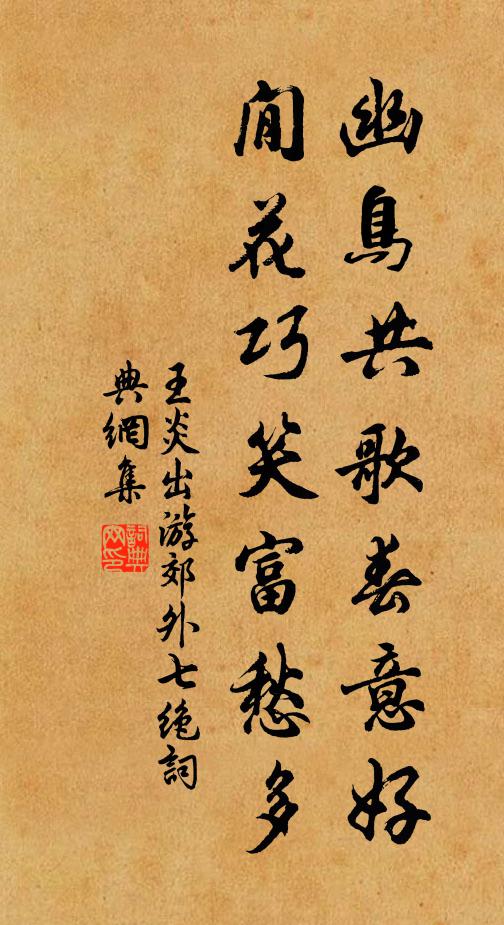 幽鳥共歌春意好
閒花巧笑富愁多
王炎出游郊外七绝詞
典網集
詞典
网印